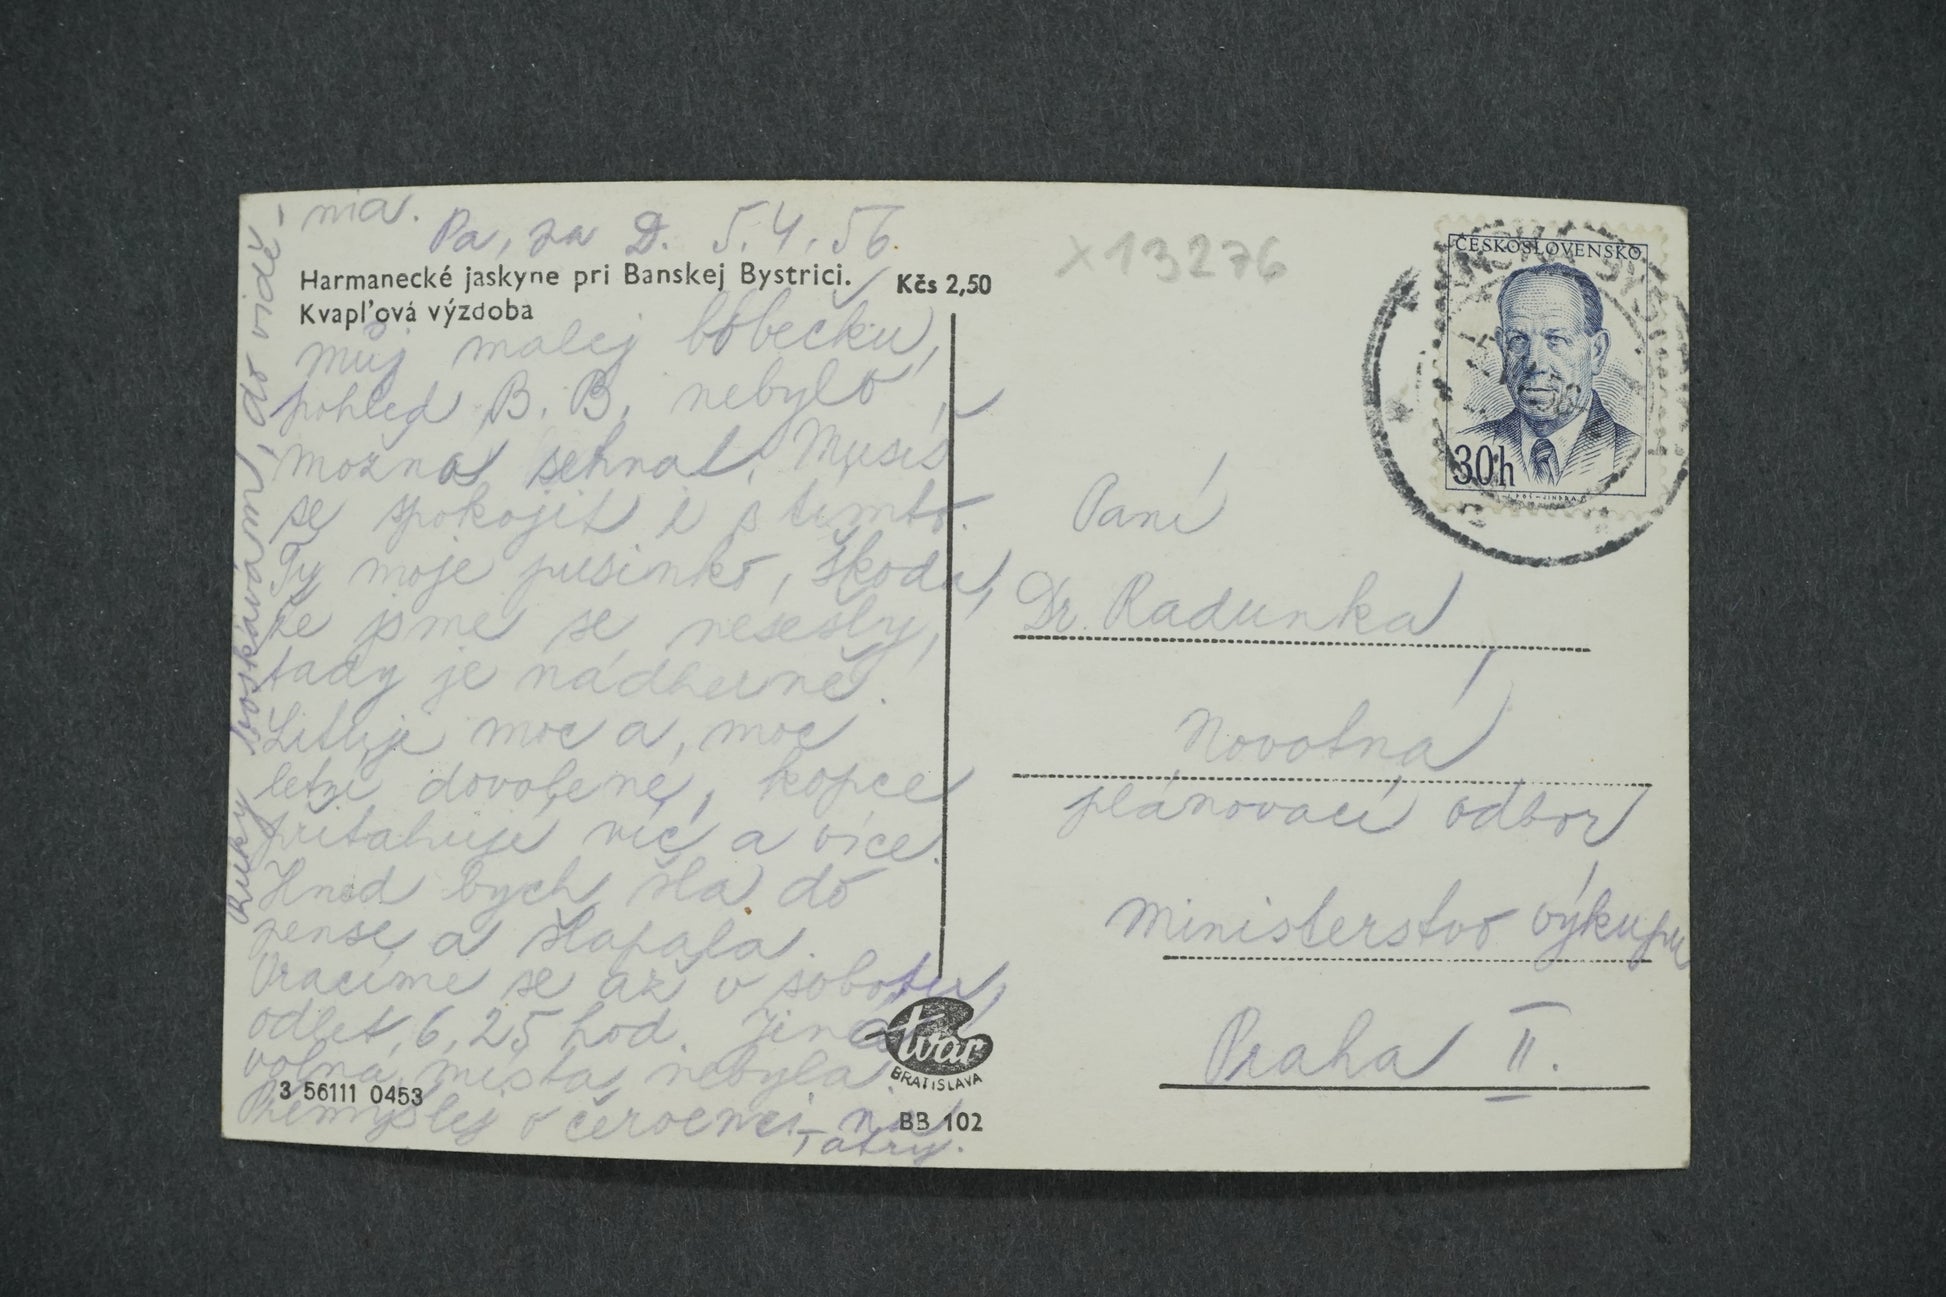 Pa, za D. 5.4.56
Harmanecké jaskyne pri Banskej Bystrici.
Kvapľová výzdoba
Kčs 2,50
Můj malej bobečku,
pohled B. B. nebylo
možno sehnat. Musíš
se spokojit i s tímto.
Ty moje pusinko, škoda,
že jsme se nesešly,
tady je nádherně.
Lituji moc a moc
letní dovolené, kopce
přitahují víc a více.
Hned bych šla do
pense a šlapala.
Vracíme se až v sobotu,
odlet 6,25 hod. Jiná
volná místa nebyla.
Přemýšlej o červenci na
Tatry.
Ruky boskávám, do vidě-
nia.
3 56111 0453
tvar
BRATISLAVA
BB 102
x13276
ČESKOSLOVENSKO
30h
Paní
Dr. Radunka
Novotná
plánovací odbor
Ministerstvo výkupu
Praha II.